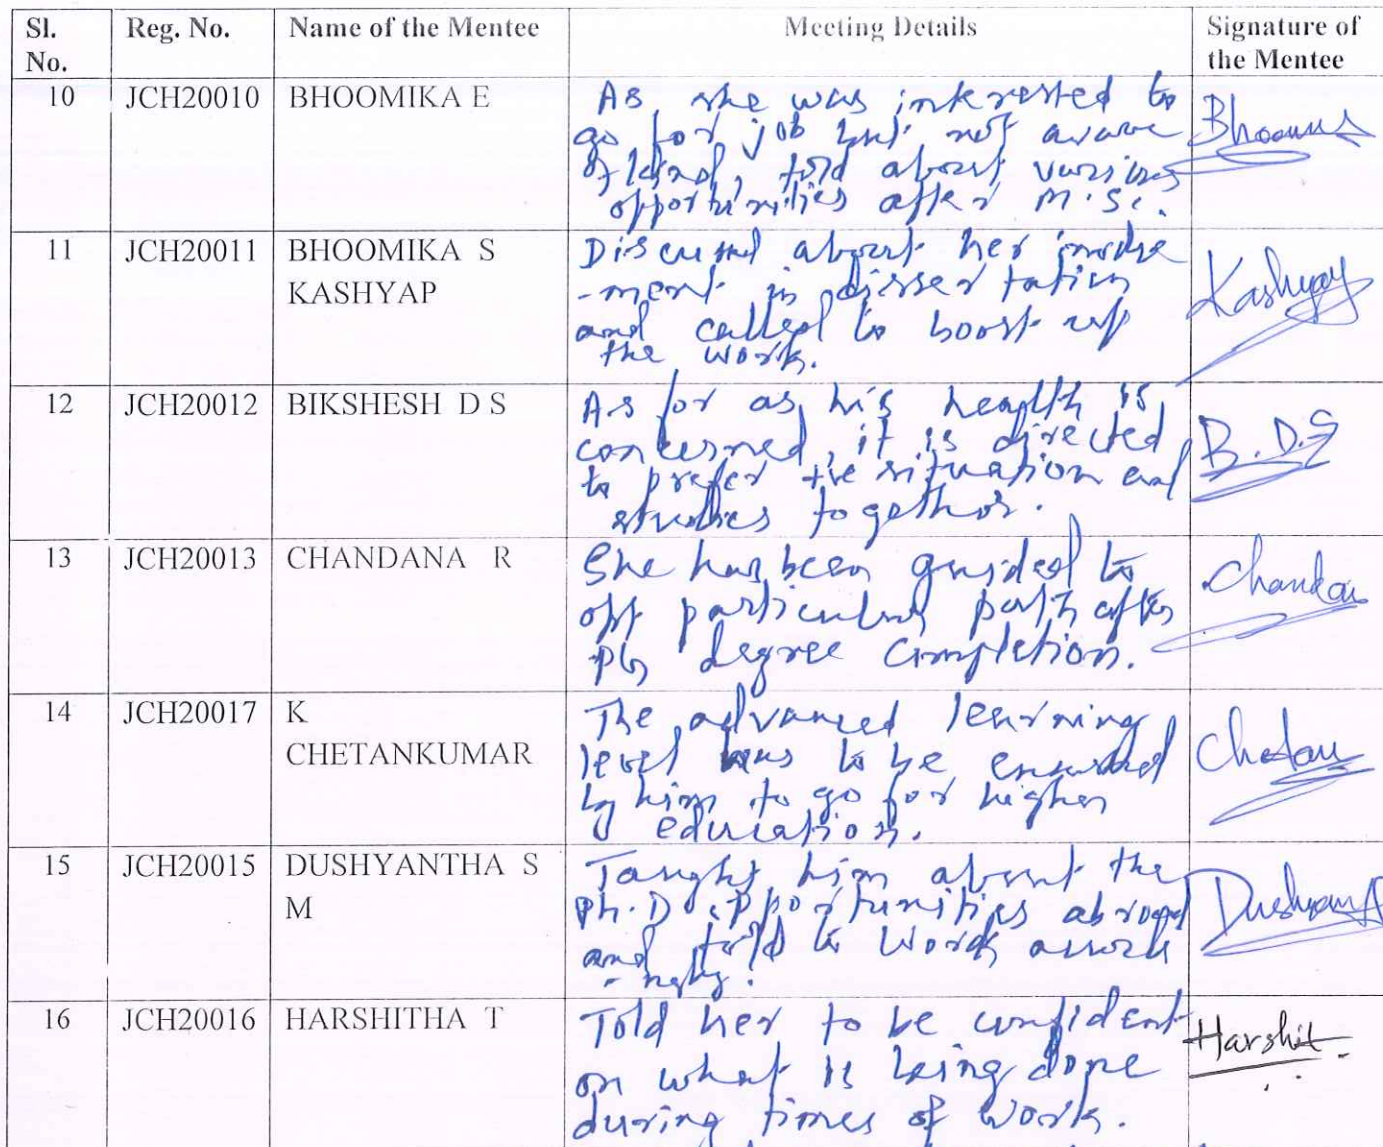 Sl. No. Reg. No. Name of the Mentee Meeting Details Signature of the Mentee
10 JCH20010 BHOOMIKA E As she was interested to
go for job but not aware
of kind, told about various
opportunities after M.Sc.
11 JCH20011 BHOOMIKA S Discussed about her
KASHYAP -ment in dissertation
and called to boost up
the work.
Kashyap
12 JCH20012 BIKSHESH D S As for as his health is
concerned, it is directed
to prefer the situation and
studies together.
B.D.S
13 JCH20013 CHANDANA R She has been guided to
opt particular path after
PG degree completion.
14 JCH20017 K The advanced learning
CHETANKUMAR level has to be ensured
by him to go for higher
education.
Chetan
15 JCH20015 DUSHYANTHA S Taught him about the
M Ph.D opportunities abroad
and told to work accordi
-ngly.
16 JCH20016 HARSHITHA T Told her to be confident
on what is being done
during times of work.
Harshit